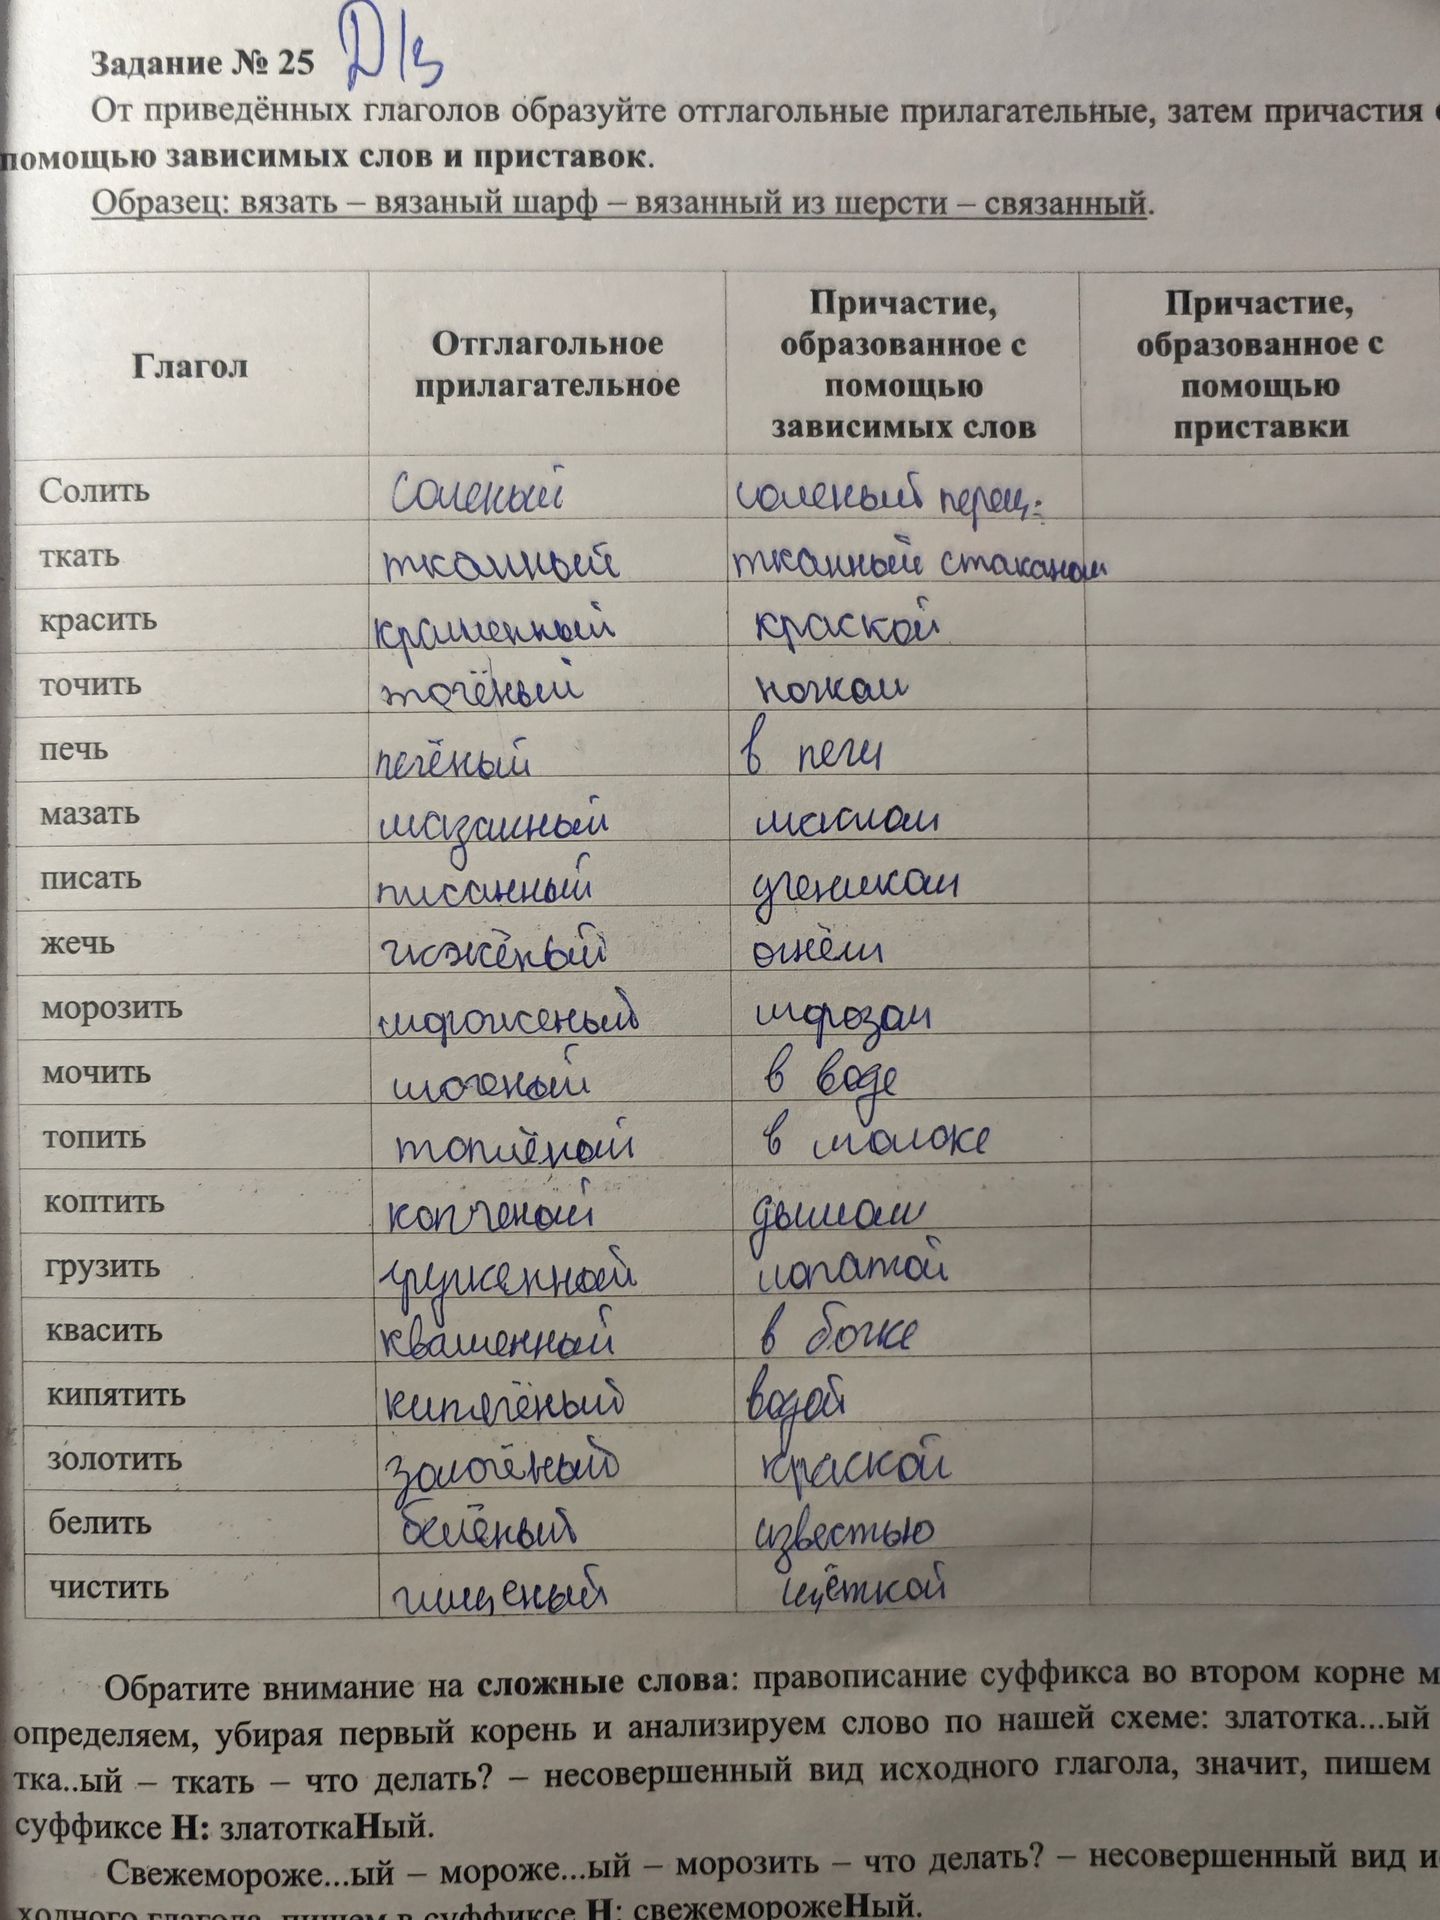 Задание № 25 Д/з
От приведённых глаголов образуйте отглагольные прилагательные, затем причастия с
помощью зависимых слов и приставок.
Образец: вязать – вязаный шарф – вязанный из шерсти – связанный.
Глагол
Отглагольное
прилагательное
Причастие,
образованное с
помощью
зависимых слов
Причастие,
образованное с
помощью
приставки
Солить соленый соленый перец:
ткать тканный тканный стаканом
красить крашенный краской
точить точёный ножом
печь печёный в печи
мазать мазанный маслом
писать писанный учеником
жечь жжёный огнём
морозить мороженый морозом
мочить моченый в воде
топить топлёный в молоке
коптить копченый дымом
грузить груженный лопатой
квасить квашенный в бочке
кипятить кипячёный водой
золотить золочёный краской
белить белёный известью
чистить чищеный щёткой
Обратите внимание на сложные слова: правописание суффикса во втором корне м
определяем, убирая первый корень и анализируем слово по нашей схеме: златотка...ый
тка..ый – ткать – что делать? – несовершенный вид исходного глагола, значит, пишем
суффиксе Н: златоткаНый.
Свежемороже...ый – мороже...ый – морозить – что делать? – несовершенный вид и
ходного глагола, пишем в суффиксе Н: свежеморожеНый.